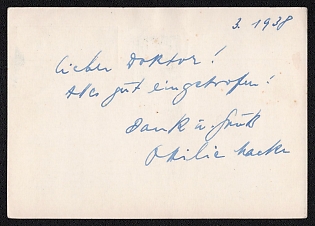 3. 1938
Lieber Doktor!
Alles gut eingetrofen!
Dank u. Gruß
Ottilie Macke